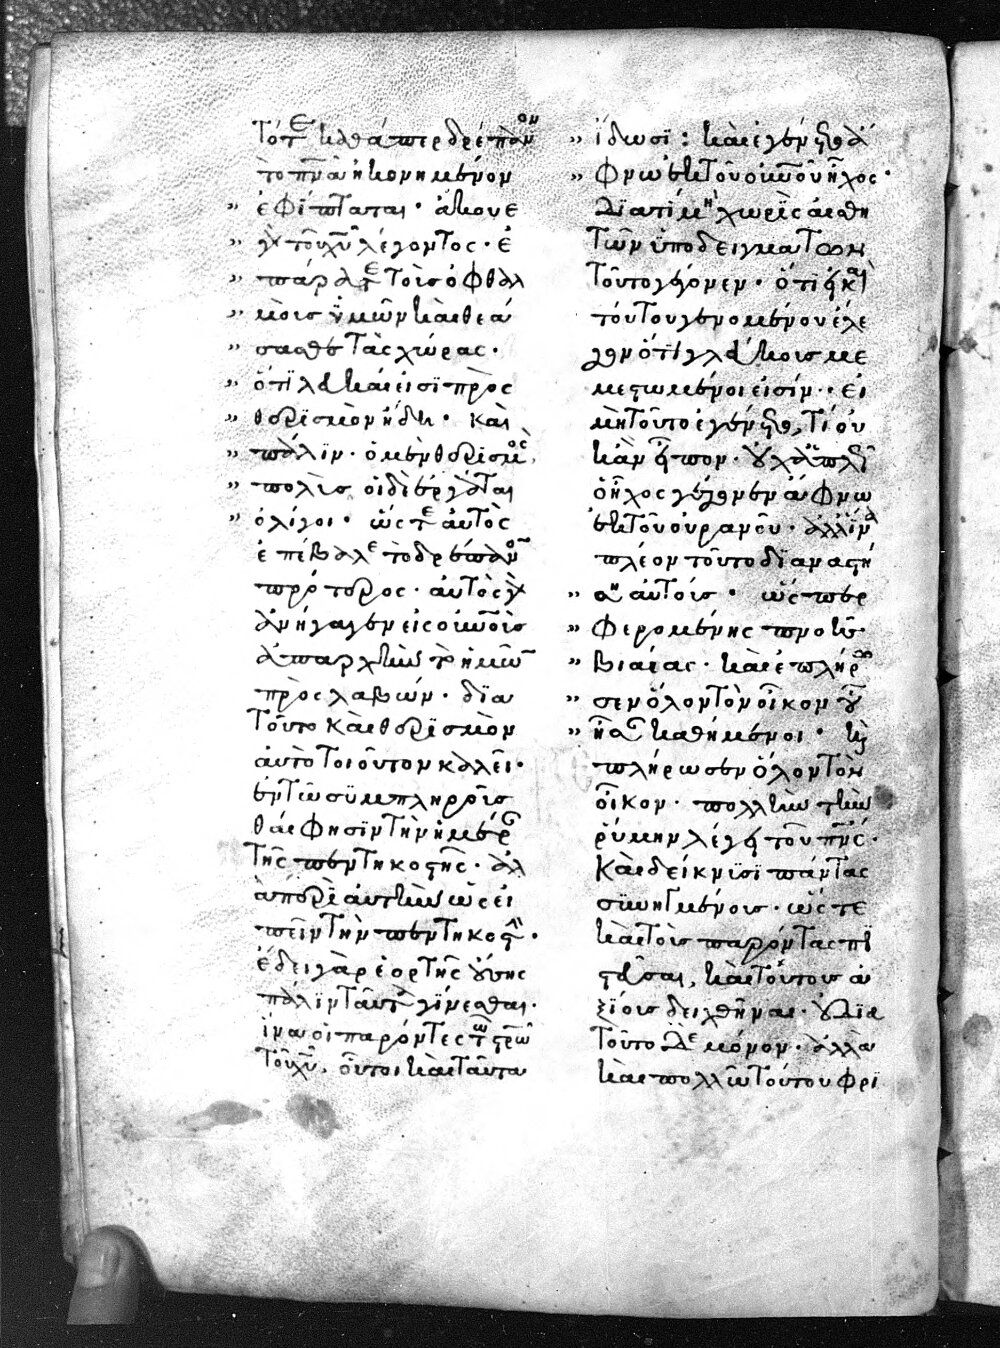 τότε καθάπερ δρέπανον
τὸ πνα ἠκονημένον
" ἐφίπταται · ἄκουε
" γὰρ τοῦ χυ λέγοντος · ἐ
" πάρατε τοὺς ὀφθαλ
" μοὺς ὑμῶν καὶ θεά
" σασθε τὰς χώρας ·
" ὅτι λευκαί εἰσι πρὸς
" θερισμὸν ἤδη · καὶ
" πάλιν · ὁ μὲν θερισμὸς
" πολὺς οἱ δὲ ἐργάται
" ὀλίγοι · ὥστε αὐτὸς
ἐπέβαλε τὸ δρέπανον
πρότερος · αὐτὸς γὰρ
ἀνήγαγεν εἰς οὐνοὺς
ἀπαρχὴν τὸ ἡμῶν
προσλαβών · διὰ
τοῦτο καὶ θερισμὸν
αὐτὸ τοιοῦτον καλεῖ ·
ἐν τῶ συμπληροῦσ
θαι φησὶν τὴν ἡμέραν
τῆς πεντηκοστῆς ·
πεῖν τὴν πεντηκοστήν ·
ἔδει γὰρ ἑορτῆς οὔσης
πάλιν ταῦτα γίνεσθαι ·
ἵνα οἱ παρόντες τῶ στρω
τοῦ χυ, οὗτοι καὶ ταῦτα
" ἴδωσι : καὶ ἐγένετο ἄ
" φνω ἐκ τοῦ οὐνοῦ ἦχος ·
διατί μὴ χωρὶς αἰσθη
τῶν ὑποδειγμάτων
τοῦτο γέγονεν · ὅτι εἰ καὶ
τούτου γενομένου ἔλε
γον ὅτι γλεύκους με
μεστωμένοι εἰσίν · εἰ
μὴ τοῦτο ἐγένετο, τί οὐ
κἂν εἶπον · οὐχ ἁπλῶς
ὁ ἦχος γέγονεν ἄφνω
ἐκ τοῦ οὐρανοῦ · ἀλλ' ἵνα
πλέον τοῦτο διαναστή
" ση αὐτούς · ὥσπερ
" φερομένης πνοῆς
" βιαίας · καὶ ἐπλήρω
" σεν ὅλον τὸν οἶκον οὗ
" ἦσαν καθήμενοι · καὶ
πλήρωσεν ὅλον τὸν
οἶκον · πολλὴν τὴν
ῥύμην λέγει τοῦ πνς ·
καὶ δείκνυσι πάντας
συνηγμένους · ὥστε
καὶ τοὺς παρόντας πι
στεῦσαι, καὶ τούτους ἀ
ξίους δειχθῆναι · οὐ διὰ
τοῦτο δὲ μόνον · ἀλλὰ
καὶ πολλῶ τούτου φρι